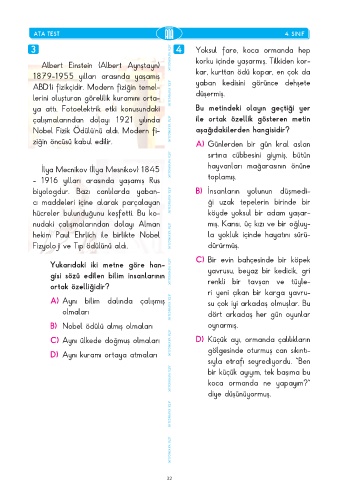 ATA TEST
4. SINIF
3
Albert Einstein (Albert Aynştayn)
1879-1955 yılları arasında yaşamış
ABD'li fizikçidir. Modern fiziğin temel-
lerini oluşturan görelilik kuramını orta-
ya attı. Fotoelektrik etki konusundaki
çalışmalarından dolayı 1921 yılında
Nobel Fizik Ödülünü aldı. Modern fi-
ziğin öncüsü kabul edilir.
İlya Mecnikov (İlya Mesnikov) 1845
- 1916 yılları arasında yaşamış Rus
biyologdur. Bazı canlılarda yaban-
cı maddeleri içine alarak parçalayan
hücreler bulunduğunu keşfetti. Bu ko-
nudaki çalışmalarından dolayı Alman
hekim Paul Ehrlich ile birlikte Nobel
Fizyoloji ve Tıp ödülünü aldı.
Yukarıdaki iki metne göre han-
gisi sözü edilen bilim insanlarının
ortak özelliğidir?
A) Aynı bilim dalında çalışmış
olmaları
B) Nobel ödülü almış olmaları
C) Aynı ülkede doğmuş olmaları
D) Aynı kuramı ortaya atmaları
4
Yoksul fare, koca ormanda hep
korku içinde yaşarmış. Tilkiden kor-
kar, kurttan ödü kopar, en çok da
yaban kedisini görünce dehşete
düşermiş.
Bu metindeki olayın geçtiği yer
ile ortak özellik gösteren metin
aşağıdakilerden hangisidir?
A) Günlerden bir gün kral aslan
sırtına cübbesini giymiş, bütün
hayvanları mağarasının önüne
toplamış.
B) İnsanların yolunun düşmedi-
ği uzak tepelerin birinde bir
köyde yoksul bir adam yaşar-
mış. Karısı, üç kızı ve bir oğluy-
la yokluk içinde hayatını sürü-
dürürmüş.
C) Bir evin bahçesinde bir köpek
yavrusu, beyaz bir kedicik, gri
renkli bir tavşan ve tüyle-
ri yeni çıkan bir karga yavru-
su çok iyi arkadaş olmuşlar. Bu
dört arkadaş her gün oyunlar
oynarmış.
D) Küçük ayı, ormanda çalılıkların
gölgesinde oturmuş can sıkıntı-
sıyla etrafı seyrediyordu. "Ben
bir küçük ayıyım, tek başıma bu
koca ormanda ne yapayım?"
diye düşünüyormuş.
32